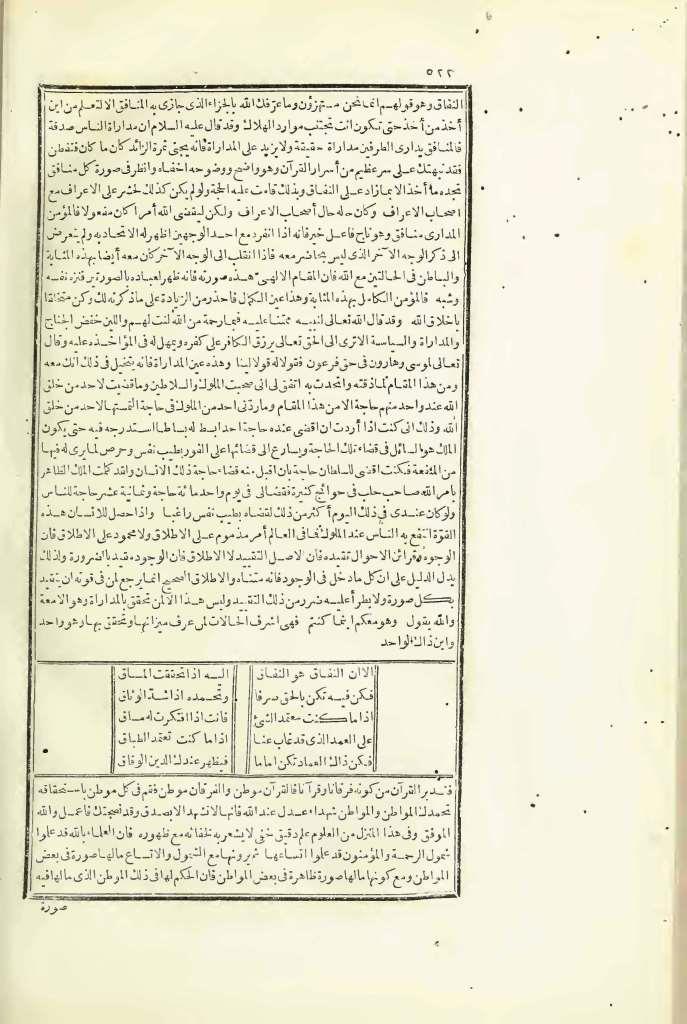 ٥٢٢
النفاق وهو قولهم انما نحن مستهزؤن وما عرفك الله بالجزاء الذى جازى به المنافق الا لتعلم من اين
أخذ من أخذ حتى تكون انت تجتنب موارد الهلاك وقد قال عليه السلام ان مداراة الناس صدقة
فالمنافق يدارى الطرفين مداراة حقيقة ولا يزيد على المداراة فانه يجنى ثمرة الزائد كان ما كان فتفطن
فقد نبهتك على سر عظيم من أسرار القرآن وهو واضح ووضوحه اخفاه وانظر فى صورة كل منافق
تجده ما أخذ الا بما زاد على النفاق وبذلك قامت عليه الحجة ولو لم يكن كذلك لحشر على الاعراف مع
اصحاب الاعراف وكان حاله حال أصحاب الاعراف ولكن ليقضى الله أمرا كان مفعولا فالمؤمن
المدارى منافق وهو ناج فاعل خير فانه اذا انفرد مع احد الوجهين اظهر له الاتحاد به ولم يتعرض
الى ذكر الوجه الآخر الذى ليس بحاضر معه فاذا انقلب الى الوجه الآخر كان معه أيضا بهذه المثابة
والباطن فى الحالتين مع الله فان المقام الالهى هذه صورته فانه ظهر لعباده بالصورتين فنزه نفسه
وشبه فالمؤمن الكامل بهذه المثابة وهذا عين الكمال فاحذر من الزيادة على ما ذكرته لك وكن متخلقا
باخلاق الله وقد قال الله تعالى لنبيه ممتنا عليه فبما رحمة من الله لنت لهم واللين خفض الجناح
والمداراة والسياسة الا ترى الى الحق تعالى يرزق الكافر على كفره ويمهل له فى المؤاخذة عليه وقال
تعالى لموسى وهارون فى حق فرعون فقولا له قولا لينا وهذه عين المداراة فانه يتخيل فى ذلك انك معه
ومن هذا المقام لما ذقته واتحدت به اتفق لى انى صحبت الملوك والسلاطين وما قضيت لاحد من خلق
الله عند واحد منهم حاجة الا من هذا المقام وما ردنى احد من الملوك فى حاجة التمستها لاحد من خلق
الله وذلك انى كنت اذا أردت ان اقضى عند احد منهم حاجة ابسط له بساطا استدرجه فيه حتى يكون
الملك هو السائل فى قضاء تلك الحاجة ويسارع الى قضائها على الفور بطيب نفس وحرص لما يرى له فيها
من المنفعة فكنت اقضى للسلطان حاجة بان اقبل منه قضاء حاجة ذلك الانسان ولقد كلمت الملك الظاهر
بامر الله صاحب حلب فى حوائج كثيرة فقضى لى فى يوم واحد مائة حاجة وثمانية عشر حاجة للناس
ولو كان عندى فى ذلك اليوم أكثر من ذلك لقضاه بطيب نفس راغبا واذا حصل للانسان هذه
القوة انتفع به الناس عند الملوك فما فى العالم أمر مذموم على الاطلاق ولا محمود على الاطلاق فان
الوجوه وقرائن الاحوال تقيده فان الاصل التقييد لا الاطلاق فان الوجود مقيد بالضرورة ولذلك
يدل الدليل على ان كل ما دخل فى الوجود فانه متناه والاطلاق الصحيح انما يرجع لمن فى قوته ان يتقيد
بكل صورة ولا يطرأ عليه ضرر من ذلك التقيد وليس هذا الا لمن تحقق بالمداراة وهو الامعة
والله يقول وهو معكم اينما كنتم فهى اشرف الحالات لمن عرف ميزانها وتحقق بها وهو واحد
واين ذاك الواحد
الا ان النفاق هو النفاق اليه اذا تحققت المساق
فكن فيه تكن بالحق صرفا وتحمده اذا شد الوثاق
اذا ما كنت معتمد الشئ فانت اذا افتكرت له مساق
على العمد الذى قد غاب عنا اذا ما كنت تعتمد الطباق
فكن ذاك العماد تكن اماما فيظهر عندك الدين الوفاق
فتدبر القرآن من كونه فرقانا وقرآنا فالقرآن موطن والفرقان موطن فقم فى كل موطن باستحقاقه
تحمدك المواطن والمواطن شهداء عدل عند الله فانها لا تشهد الا بصدق وقد نصحتك فاعمل والله
الموفق وفى هذا المنزل من العلوم علم دقيق خفى لا يشعر به لخفائه مع ظهوره فان العلماء بالله قد علموا
شمول الرحمة والمؤمنون قد علموا اتساعها ثم يرونها مع الشمول والاتساع ما لها صورة فى بعض
المواطن ومع كونها ما لها صورة ظاهرة فى بعض المواطن فان الحكم لها فى ذلك الموطن الذى ما لها فيه
صورة